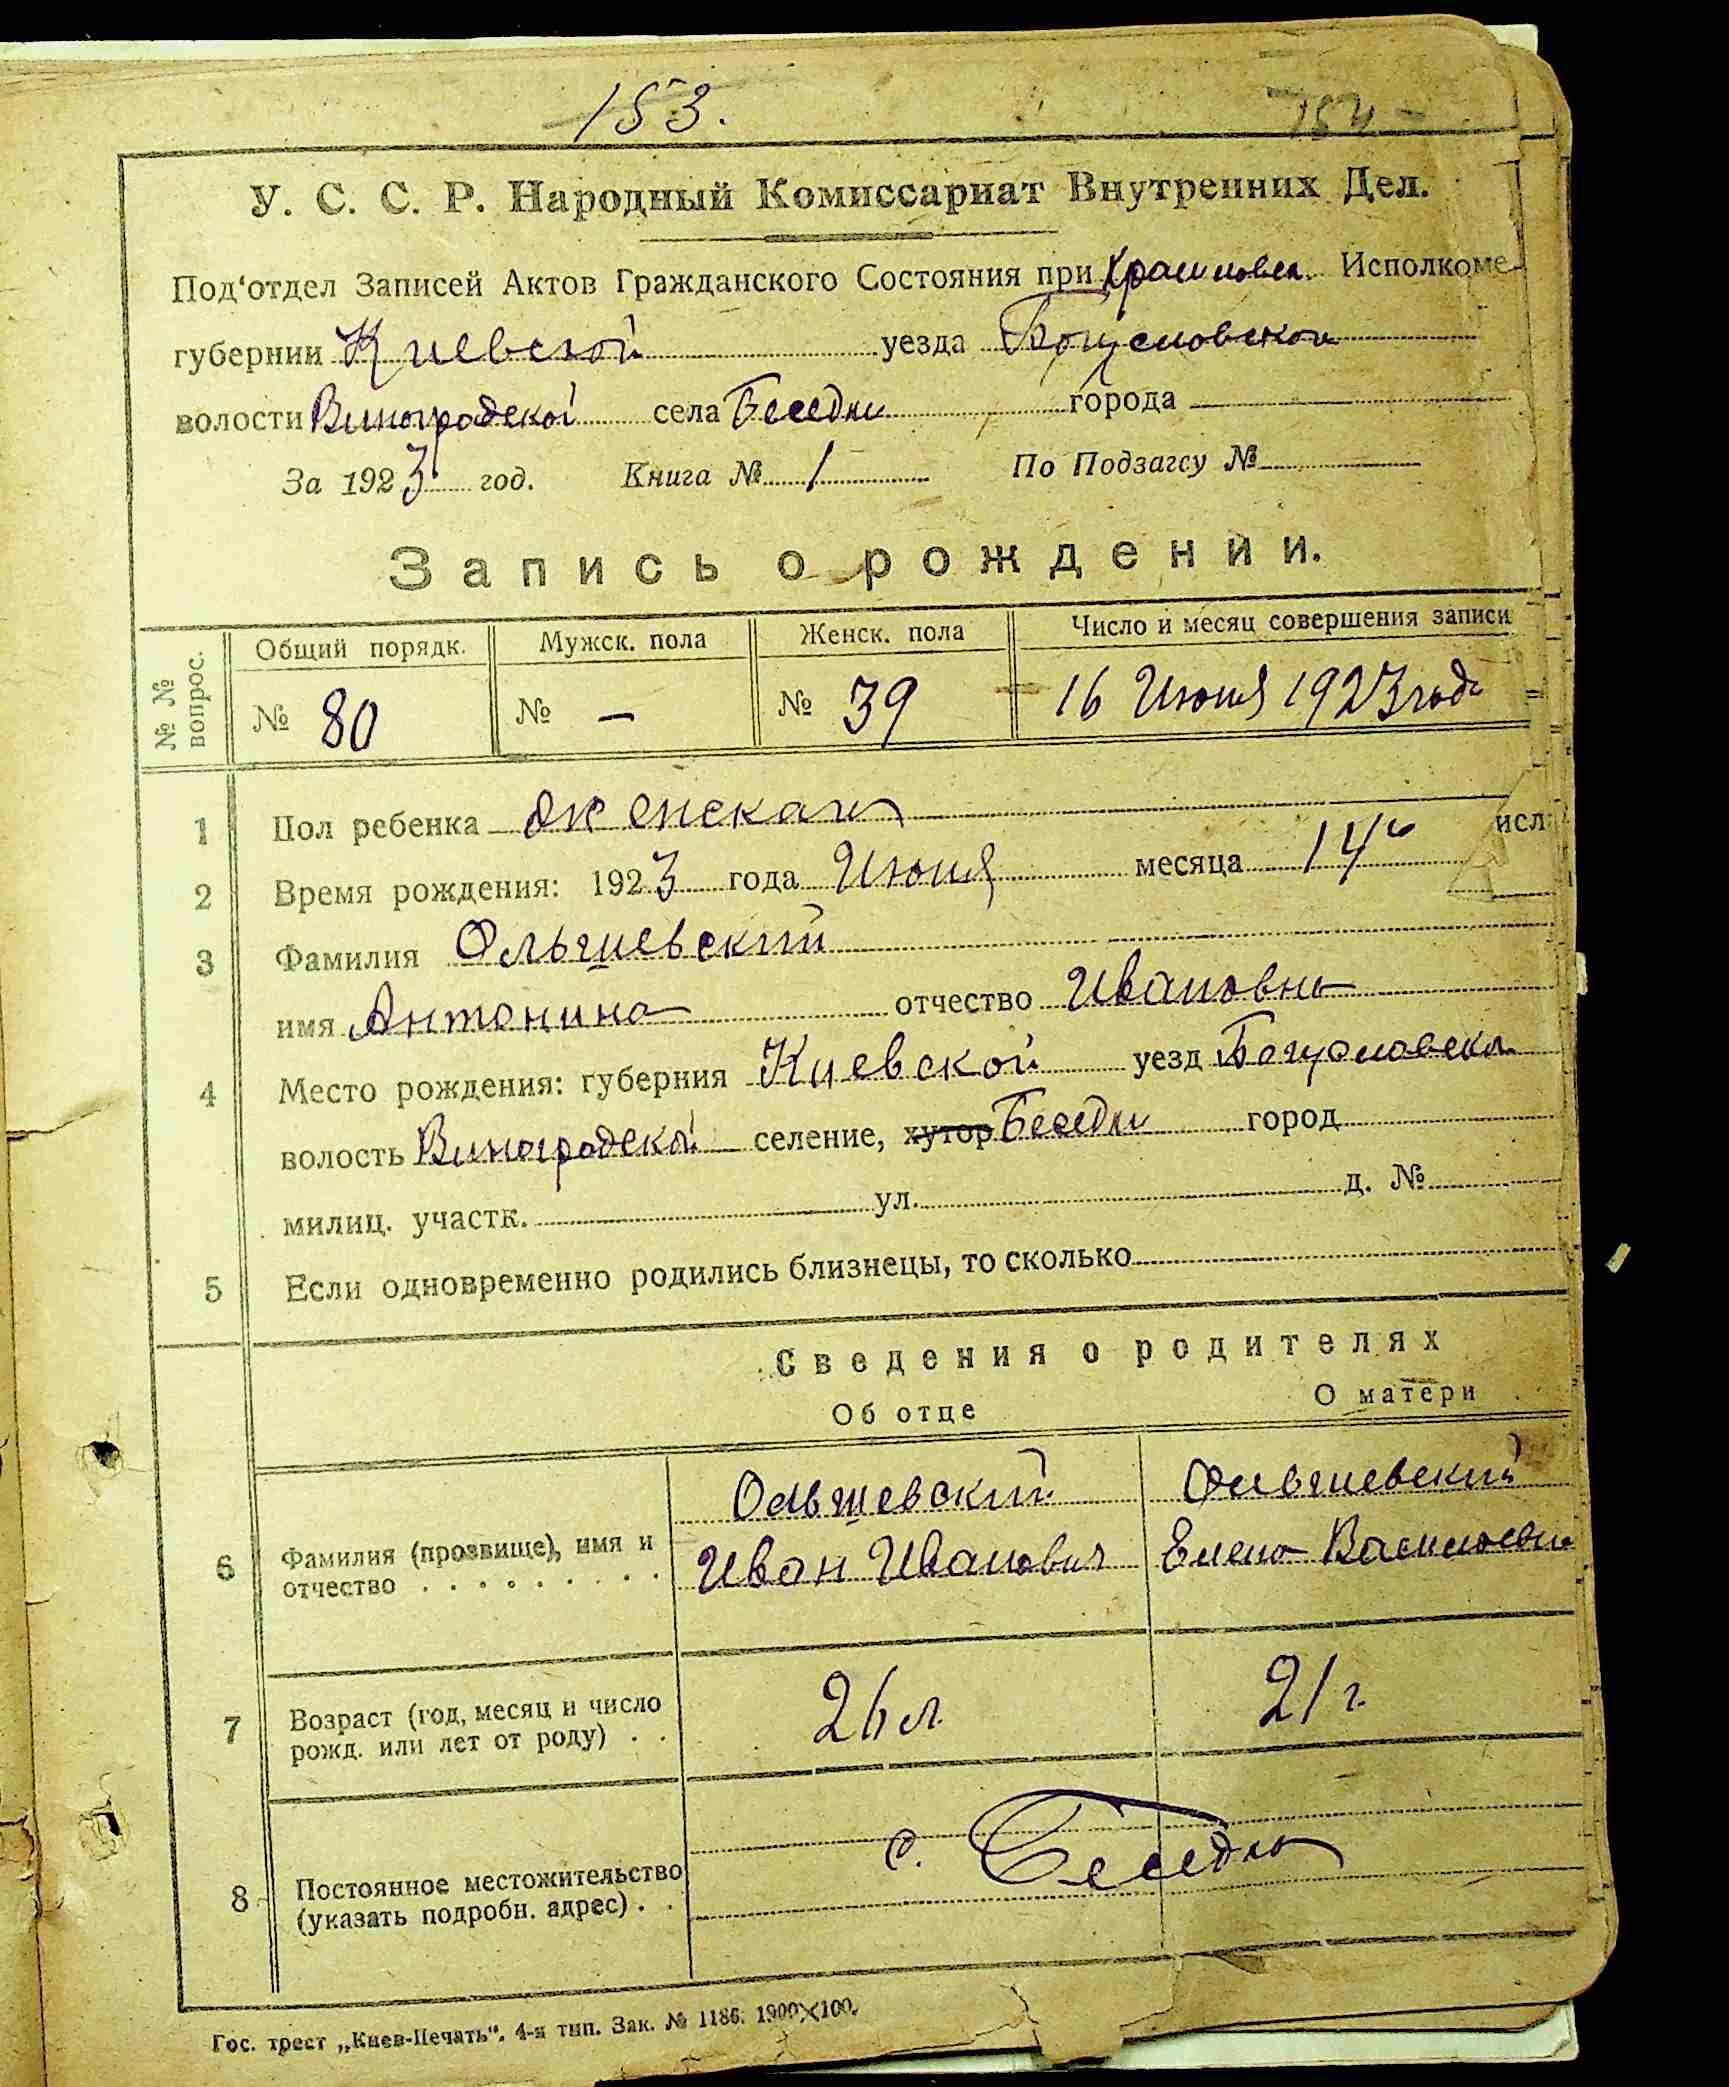 153.
154
У. С. С. Р. Народный Комиссариат Внутренних Дел.
Под‘отдел Записей Актов Гражданского Состояния при Исполкоме
губернии Киевской уезда Богуславской
волости Виноградской села Беседки города
За 1923 год. Книга № 1 По Подзагсу №
Запись о рождении.
№ № вопрос. Общий порядк. Мужск. пола Женск. пола Число и месяц совершения записи
№ 80 № — № 39 16 Июня 1923 год
1 Пол ребенка женская
2 Время рождения: 1923 года Июня месяца 14го исл
3 Фамилия Ольшевский
имя Антонина отчество Ивановна
4 Место рождения: губерния Киевской уезд Богуславск
волость Виноградской селение, хутор Беседки город
милиц. участк. ул. д. №
5 Если одновременно родились близнецы, то сколько
Сведения о родителях
Об отце О матери
Ольшевский Ольшевский
6 Фамилия (прозвище), имя и Иван Иванович Елена Васильевна
отчество . . . . . . . . .
7 Возраст (год, месяц и число 26 л. 21 г.
рожд. или лет от роду) . .
8 Постоянное местожительство с. Беседка
(указать подробн. адрес) . .
Гос. трест „Киев-Печать“. 4-я тип. Зак. № 1186. 1900×100.